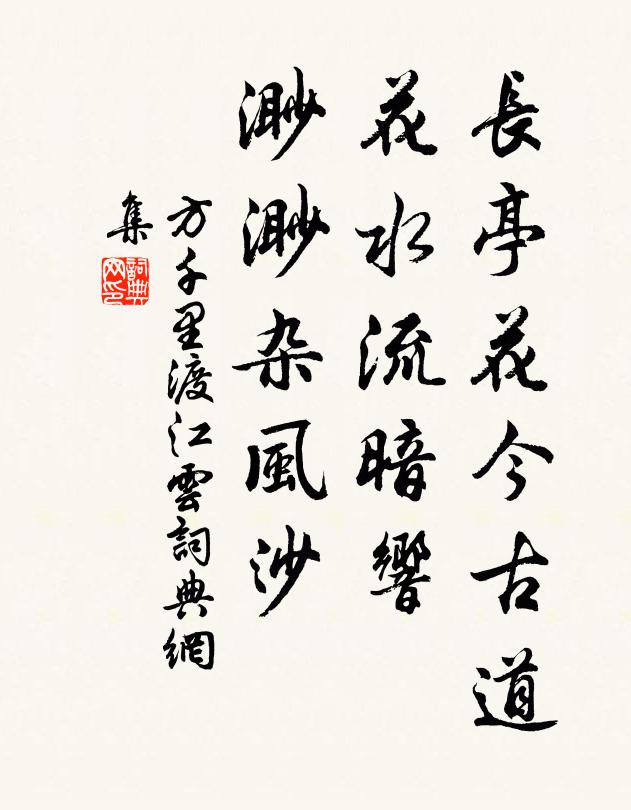 長亭花今古道
花水流暗響
渺渺杂風沙
方千里渡江雲詞典網
集
詞典
网印